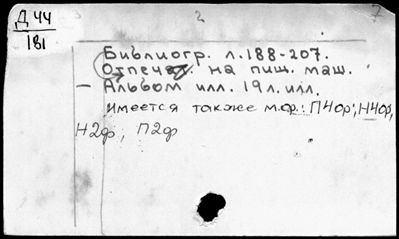 Д 44
181
2
7
Библиогр. л. 188-207.
Отпечат. на пиш. маш.
— Альбом илл. 19 л. илл.
имеется также м.ф.: П4ф; Н4ф,
Н2ф, П2ф